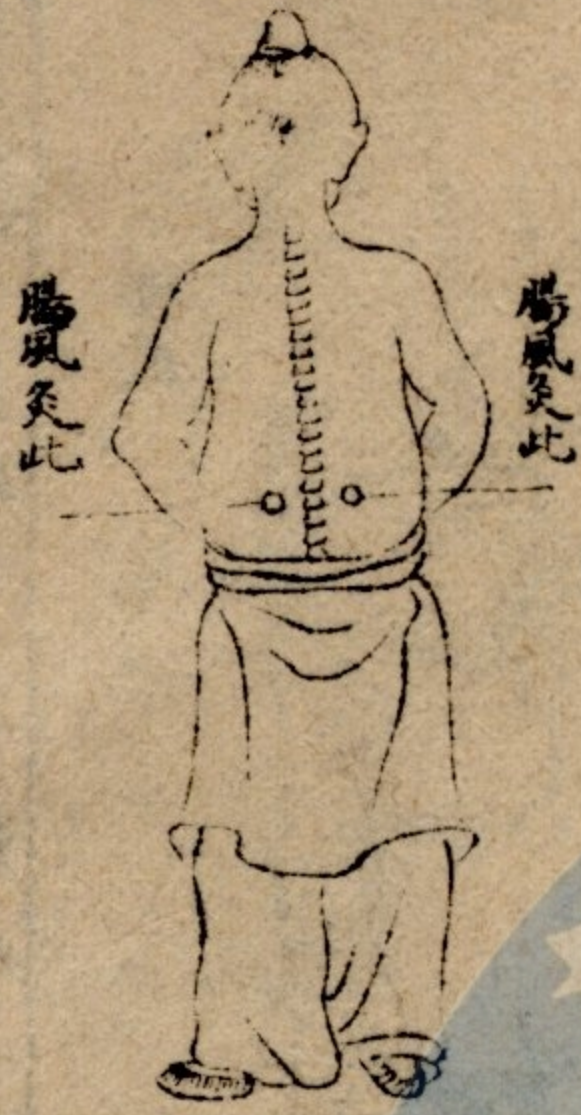 腸風灸此
腸風灸此